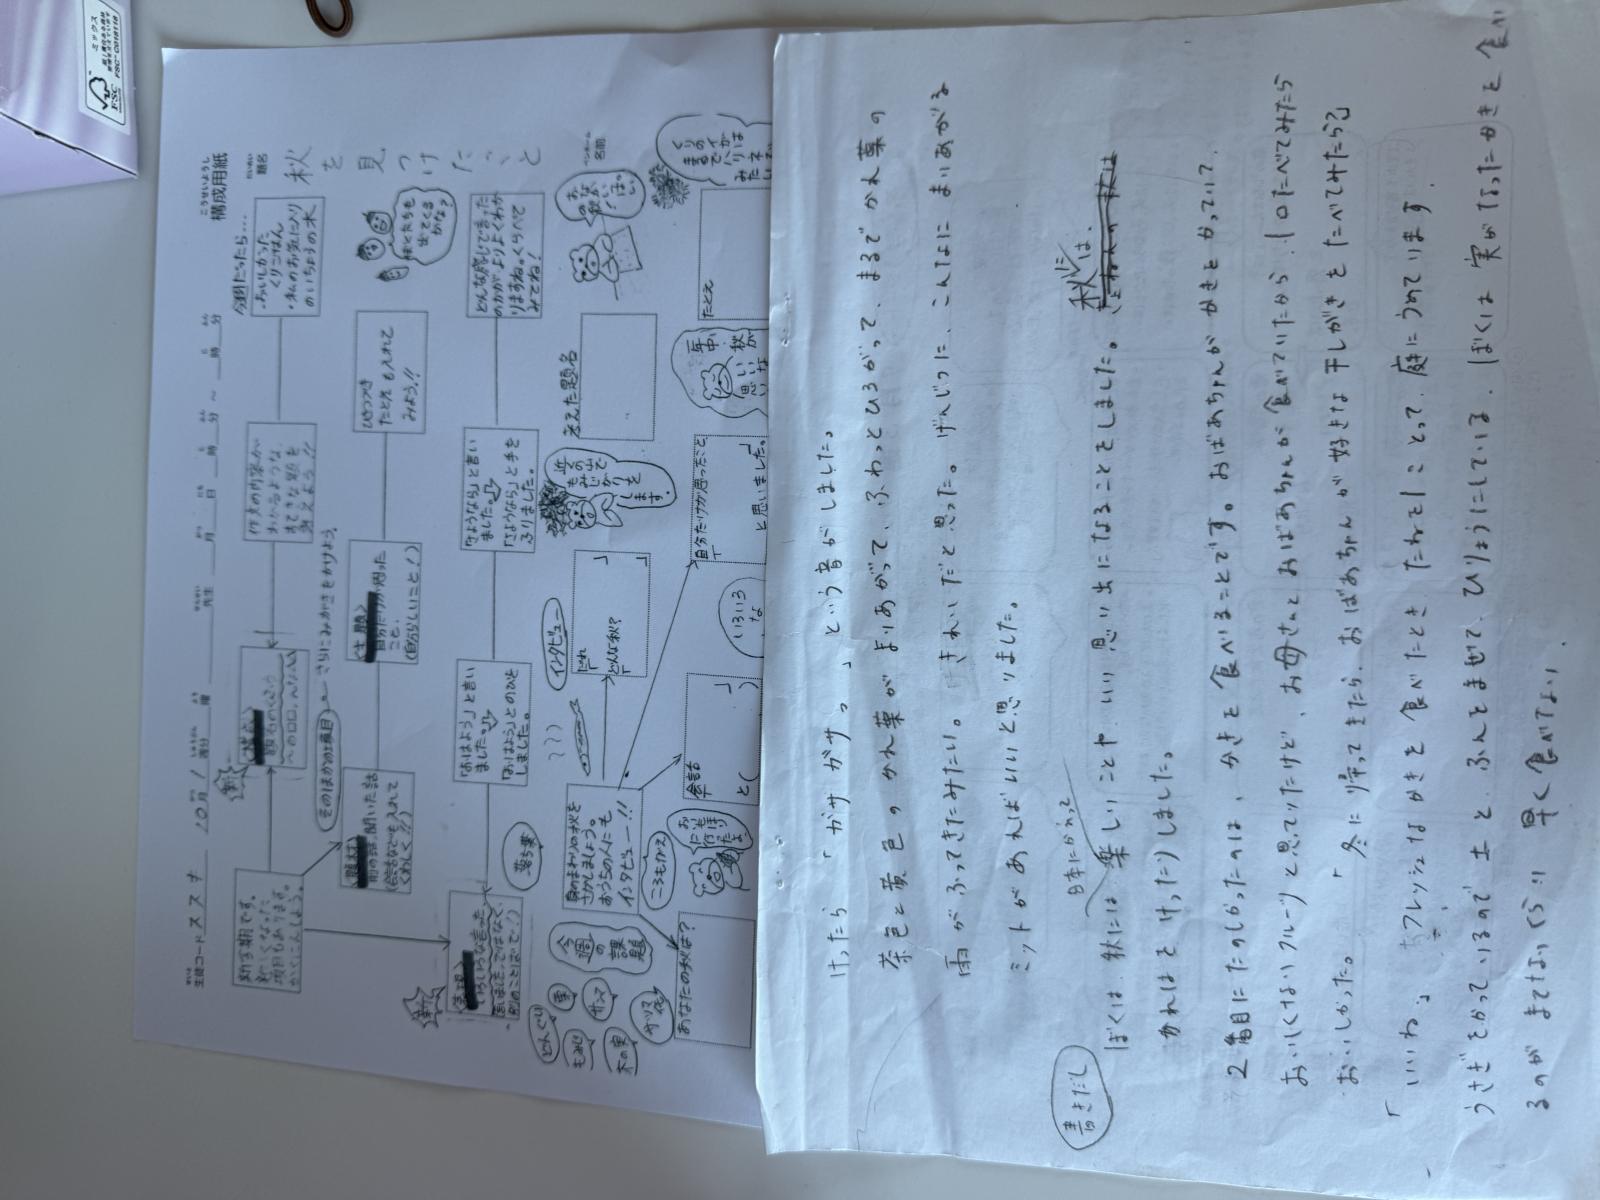 こうせいようし
構成用紙
だいめい
題名
秋を見つけたこと
ペンネーム
名前
生徒コード ススす 10月
週分
曜
先生
月
日
時
分
〜
時
分
新学期です。
新しくなった
項目もあります。
がくにんしよう。
題名のくふう
さらにみがきをかけよう。
作文の内容が
わかるような、
すてきな題を
考えよう!!
今回だったら…
・おいしかった
くりごはん
・私のお気に入り
のいちょうの木
そのほかの項目
前の話、聞いた話
(会話なども入れて
くわしく!!)
自分だけが思った
こと。
(自分らしいこと!)
ひきつづき
たとえも入れて
みよう!!
ぼくたちも
出てくる
かな?
いろいろな言った
言いました。ではなく、
別のことばで!
「おはよう」と言い
ました。
「おはよう」とのびを
しました。
「さようなら」と言い
ました。
「さようなら」と手を
ふりました。
どんな感じで言った
のかがよりよくわか
りますね。くらべて
みてね!
今週の課題
どんぐり
栗
もみじ
サンマ
木の実
サツマイモ
落ち葉
身のまわりの秋を
さがしましょう。
おうちの人にも
インタビュー!!
インタビュー
だれ
どんな秋?
近くの山で
もみじがりを
します。
考えた題名
あなたの秋は?
ころもがえ
会話
と(
いろいろな
自分だけが思ったこと
と思いました。
一年中、秋がいいな
たとえ
けったら「ガサガサ。」という音がしました。
茶色と黄色のかれ葉がまいあがって、ふわっとひろがって、まるでかれ葉の
雨がふってきたみたい。「きれいだと思った。げんじつに、こんなにまいあがる
ミットがあればいいと思いました。
書きだし
秋には、
ぼくは、秋には楽しいことや、いい思い出になることをしました。
日本にかえって
かれはをけったりしました。
2番目にたのしかったのは、かきを食べることです。おばあちゃんがかきをかっていて、
おいしくないフルーツと思ていたけど、お母さんとおばあちゃんが食べていたから、1口たべてみたら
おいしかった。「冬に帰ってきたら、おばあちゃんが好きな干しがきをたべてみたら?」
「いいね。」フレッシュなかきを食べたとき、たねを1ことって、庭にうめています。
うさぎをかっているので土と、ふんをまぜて、ひりょうにしている。ぼくは実がなったかきを食べ
るのが、まてないくらい早く食べてない。
ミックス
FSC
FSC® C018118